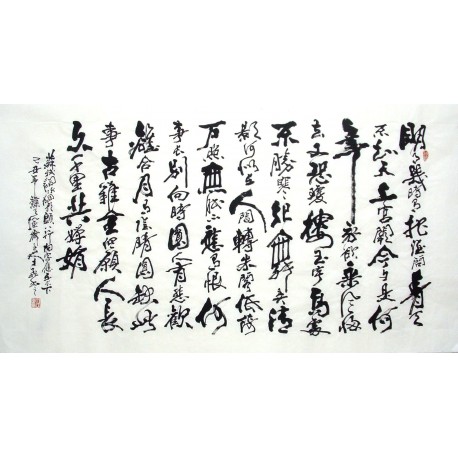 明月幾時有把酒問青天
不知天上宮闕今夕是何
年我欲乘風歸
去又恐瓊樓玉宇高處
不勝寒起舞弄清
影何似在人間轉朱閣低綺
戶照無眠不應有恨何
事長別向時圓人有悲歡
離合月有陰晴圓缺此
事古難全但願人長
久千里共嬋娟